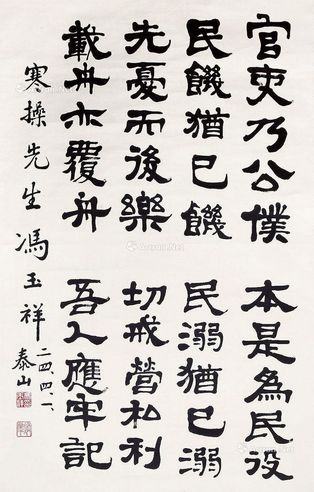 官吏乃公僕　本是為民役
民饑猶己饑　民溺猶己溺
先憂而後樂　切戒營私利
載舟亦覆舟　吾人應牢記
寒操先生　馮玉祥　二四、四、一、
泰山